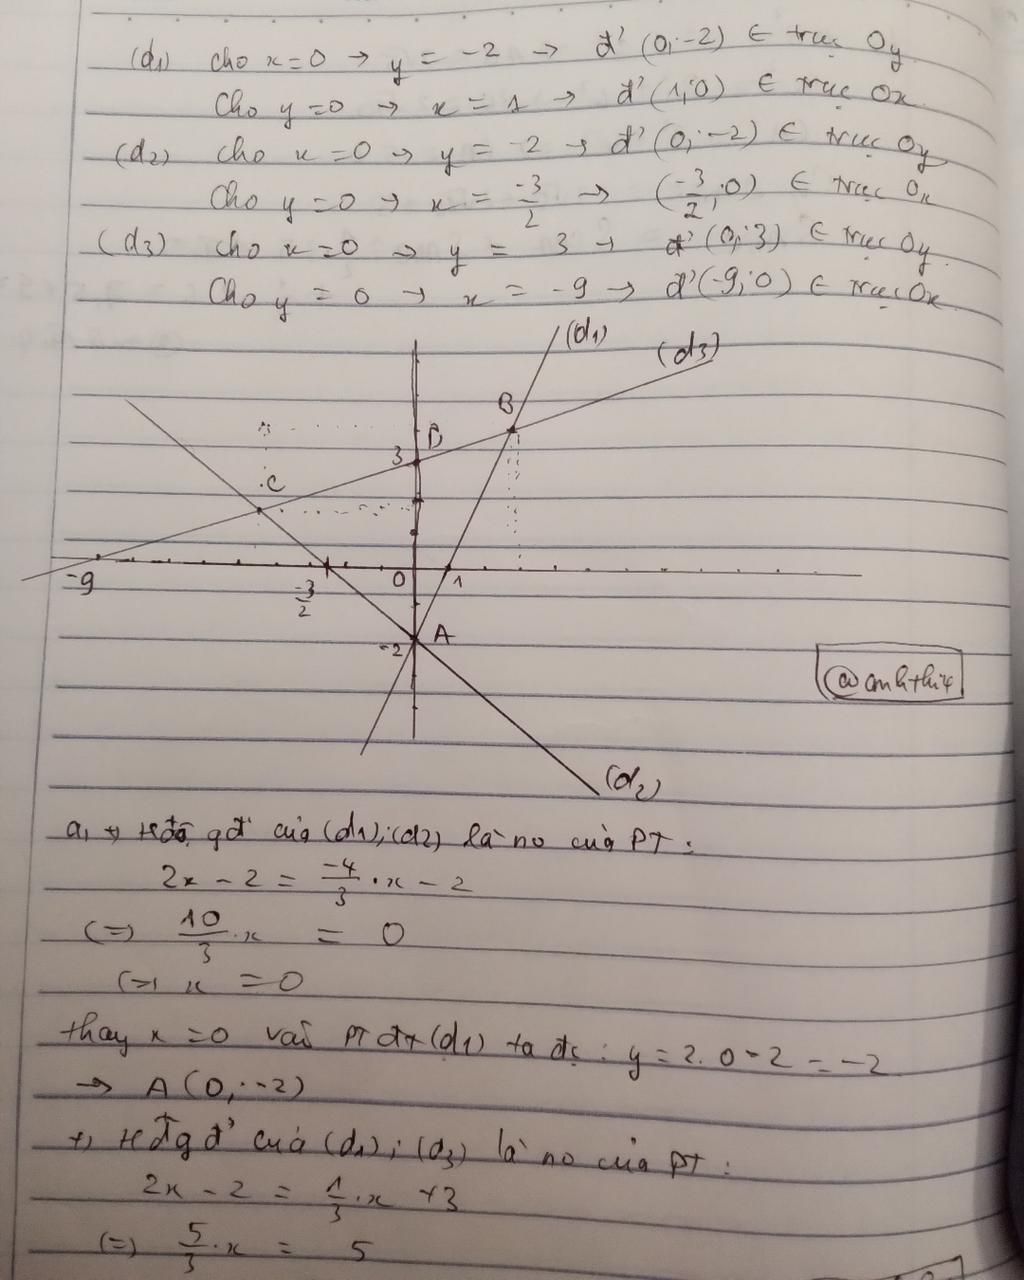 (d1) cho x=0 → y = -2 → đ' (0;-2) ∈ trục Oy
Cho y=0 → x = 1 → đ' (1;0) ∈ trục Ox
(d2) cho x=0 → y = -2 → đ' (0;-2) ∈ trục Oy
Cho y=0 → x = -3/2 → (-3/2;0) ∈ trục Ox
(d3) cho x=0 → y = 3 → đ' (0;3) ∈ trục Oy
Cho y = 0 → x = -9 → đ' (-9;0) ∈ trục Ox
(d1)
(d3)
B
D
3
C
-9
-3/2
0
1
-2
A
@anhthi4
(d2)
a, +, HĐộ gđ' của (d1);(d2) là no của PT:
2x - 2 = -4/3 . x - 2
(=) 10/3 . x = 0
(=) x = 0
thay x = 0 vào PT đt (d1) ta đc : y = 2.0-2 = -2
→ A(0;-2)
+, HĐ gđ' của (d1); (d3) là no của PT:
2x - 2 = 1/3 . x +3
(=) 5/3 . x = 5